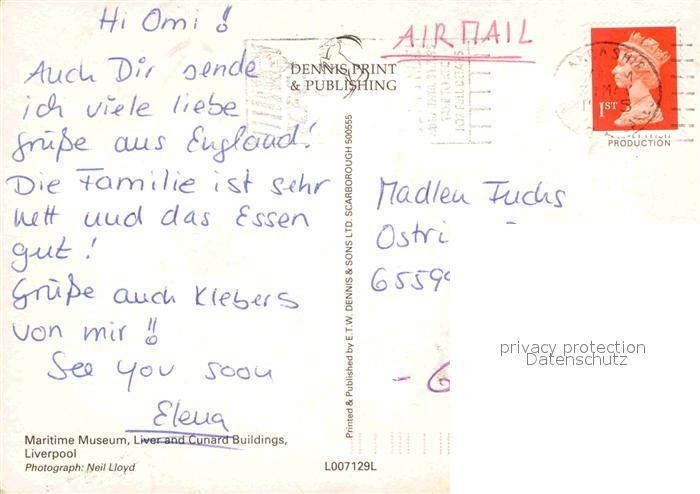 Hi Omi !!
Auch Dir sende
ich viele liebe
Grüße aus England!
Die Familie ist sehr
nett und das Essen
gut!
Grüße auch Klebers
von mir !!
See you soon
Elena
Maritime Museum, Liver and Cunard Buildings,
Liverpool
Photograph: Neil Lloyd
L007129L
DENNIS PRINT
& PUBLISHING
Printed & Published by E.T.W. DENNIS & SONS LTD. SCARBOROUGH 500555
AIRMAIL
1ST
PRODUCTION
Madlen Fuchs
Ostri
6559
- G
privacy protection
Datenschutz